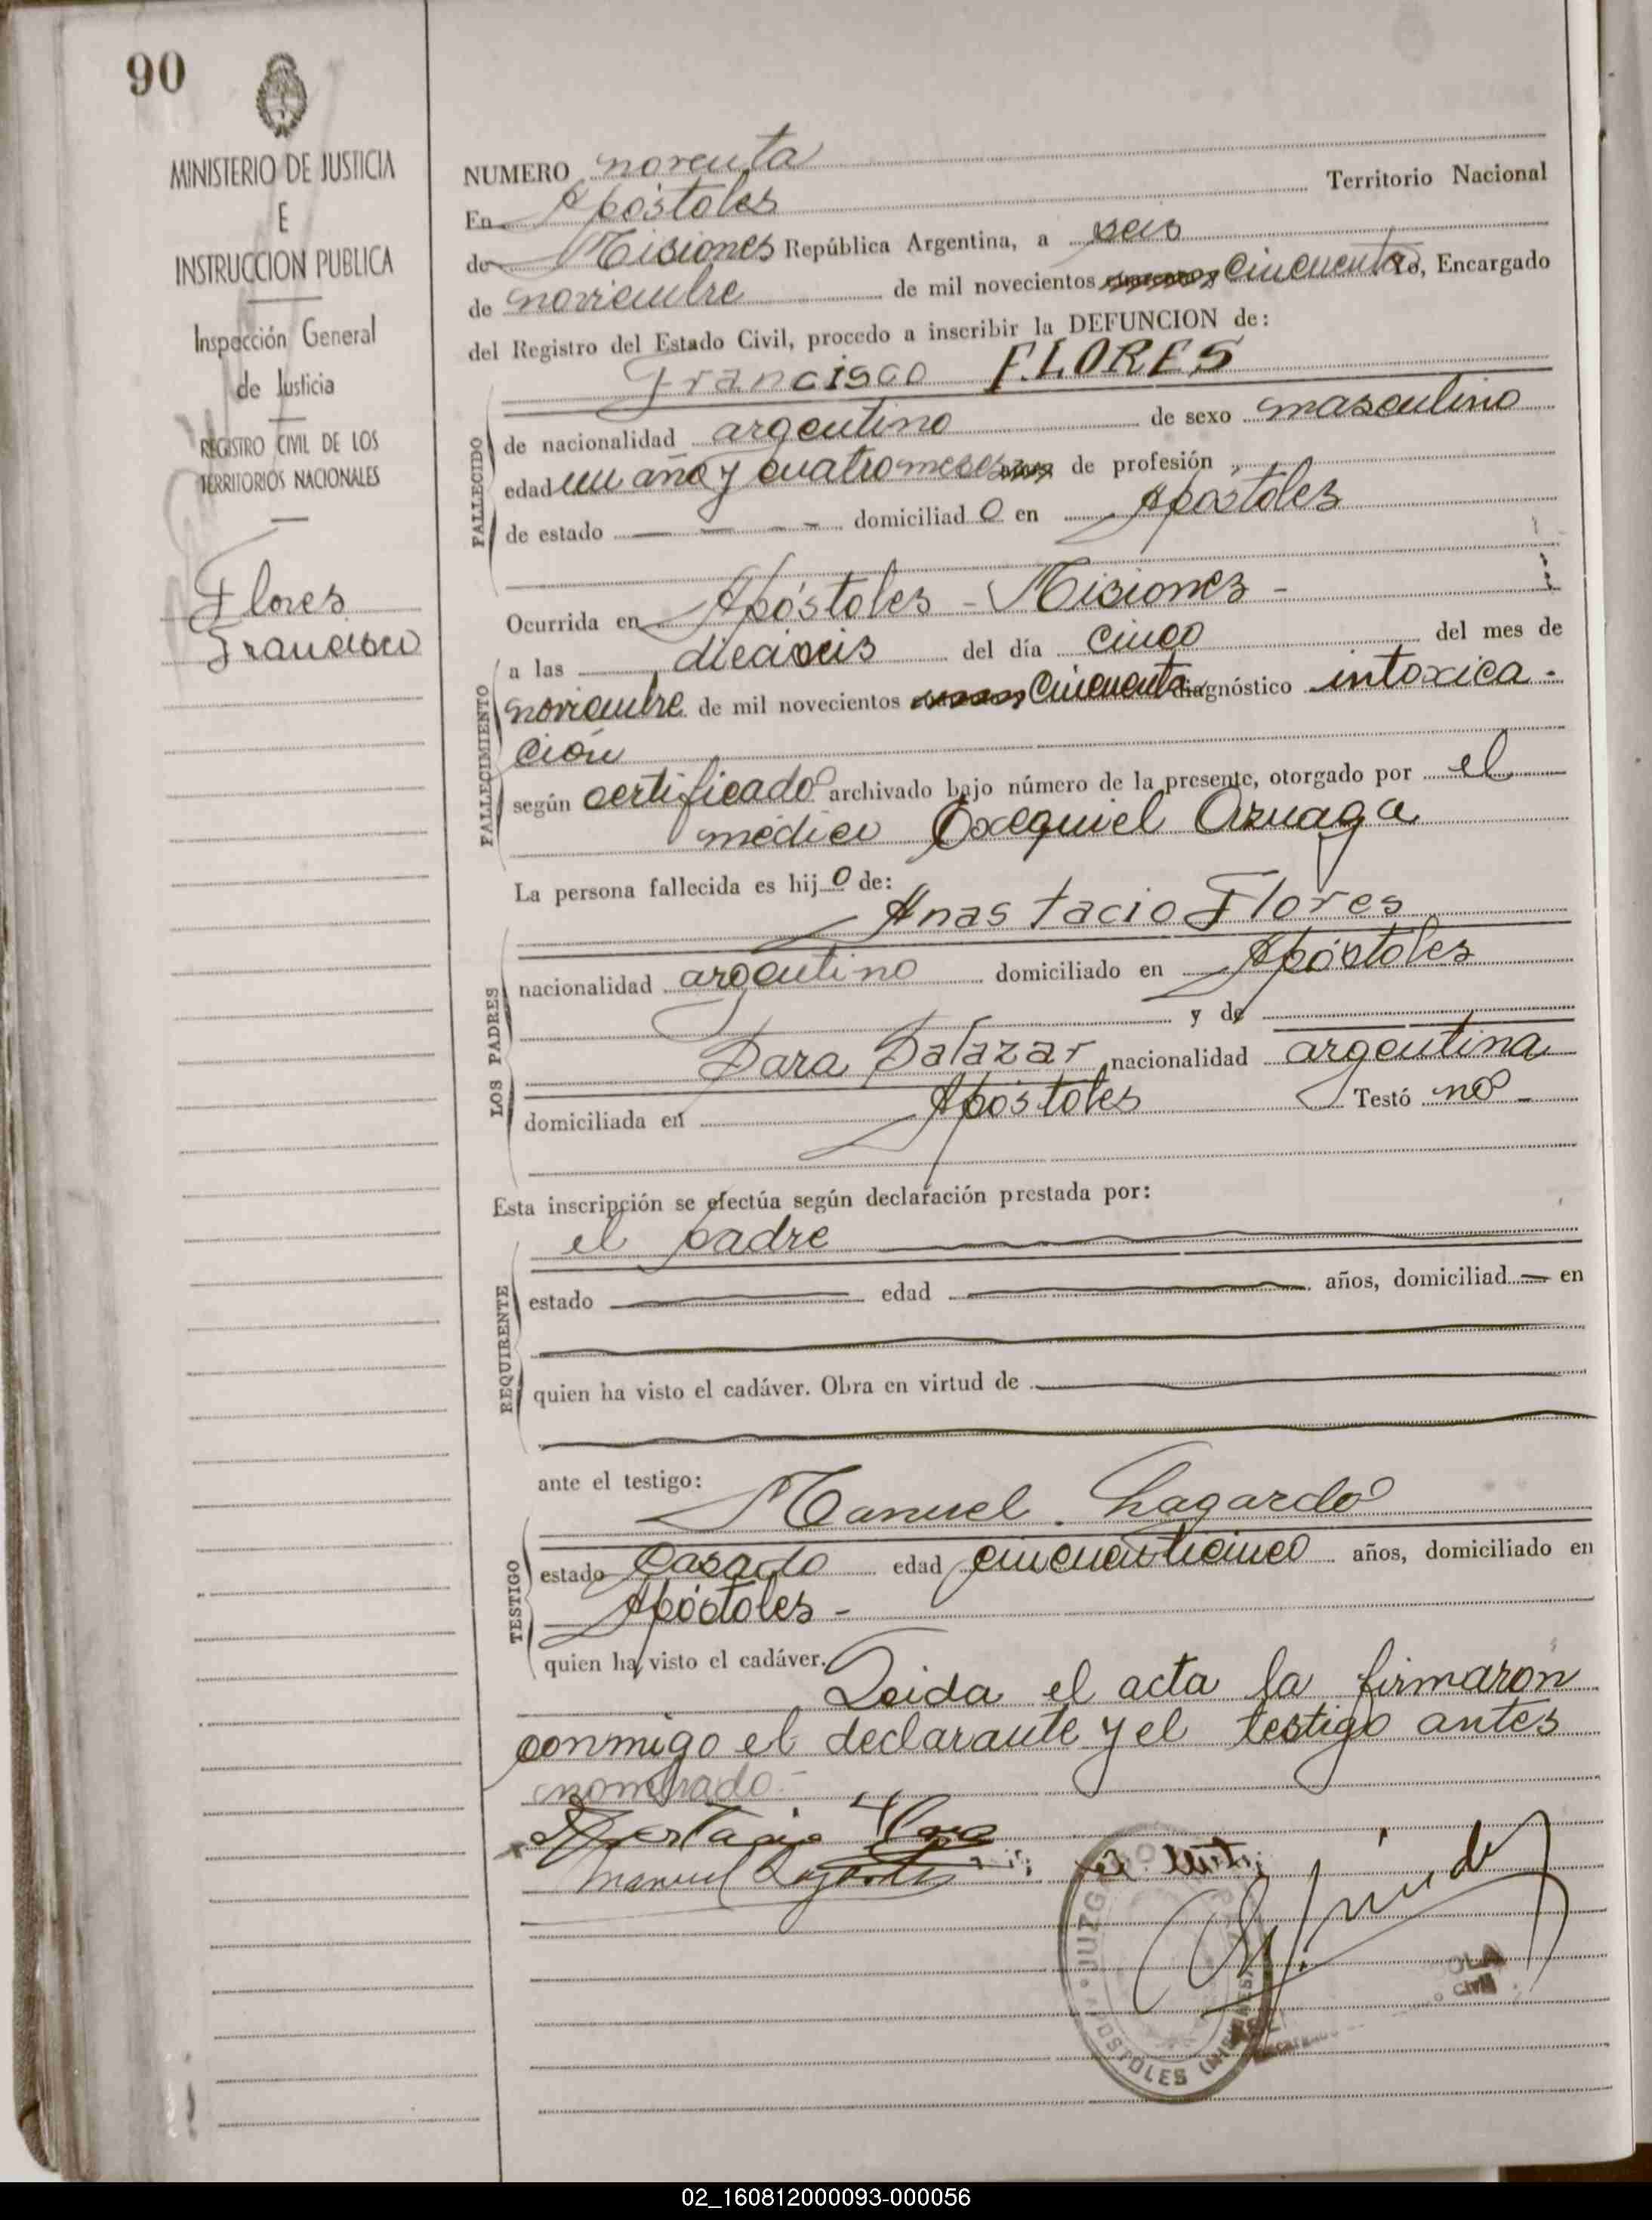 90
MINISTERIO DE JUSTICIA
E
INSTRUCCION PUBLICA
Inspección General
de Justicia
REGISTRO CIVIL DE LOS
TERRITORIOS NACIONALES
Flores
Francisco
NUMERO noventa
En Apóstoles Territorio Nacional
de Misiones República Argentina, a seis
de noviembre de mil novecientos cincuenta Yo, Encargado
del Registro del Estado Civil, procedo a inscribir la DEFUNCION de:
Francisco FLORES
FALLECIDO
de nacionalidad argentino de sexo masculino
edad un año y cuatro meses de profesión
de estado — — — domiciliado en Apóstoles
Ocurrida en Apóstoles - Misiones -
FALLECIMIENTO
a las dieciseis del día cinco del mes de
noviembre de mil novecientos cincuenta diagnóstico intoxica-
ción
según certificado archivado bajo número de la presente, otorgado por el
médico Exequiel Aznaga
La persona fallecida es hijo de:
Anastacio Flores
LOS PADRES
nacionalidad argentino domiciliado en Apóstoles
y de
Sara Salazar nacionalidad argentina
domiciliada en Apóstoles Testó no -
Esta inscripción se efectúa según declaración prestada por:
el padre
REQUIRENTE
estado edad años, domiciliad en
quien ha visto el cadáver. Obra en virtud de
ante el testigo:
Manuel Lagardo
TESTIGO
estado Casado edad cincuenticinco años, domiciliado en
Apóstoles -
quien ha visto el cadáver.
Leida el acta la firmaron
conmigo el declarante y el testigo antes
nombrado -
Manuel
JUZGADO
APOSTOLES (MISIONES)
02_160812000093-000056